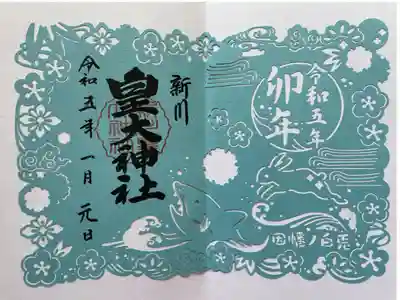 令和五年
卯年
因幡ノ白兎
新川
皇大神社
令和五年 一月 元日